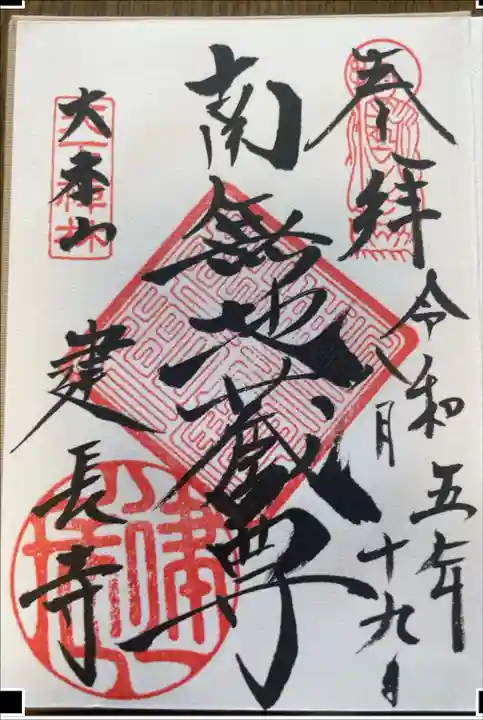 奉拝
令和五年
八月十九日
南無地蔵尊
大本山
建長寺